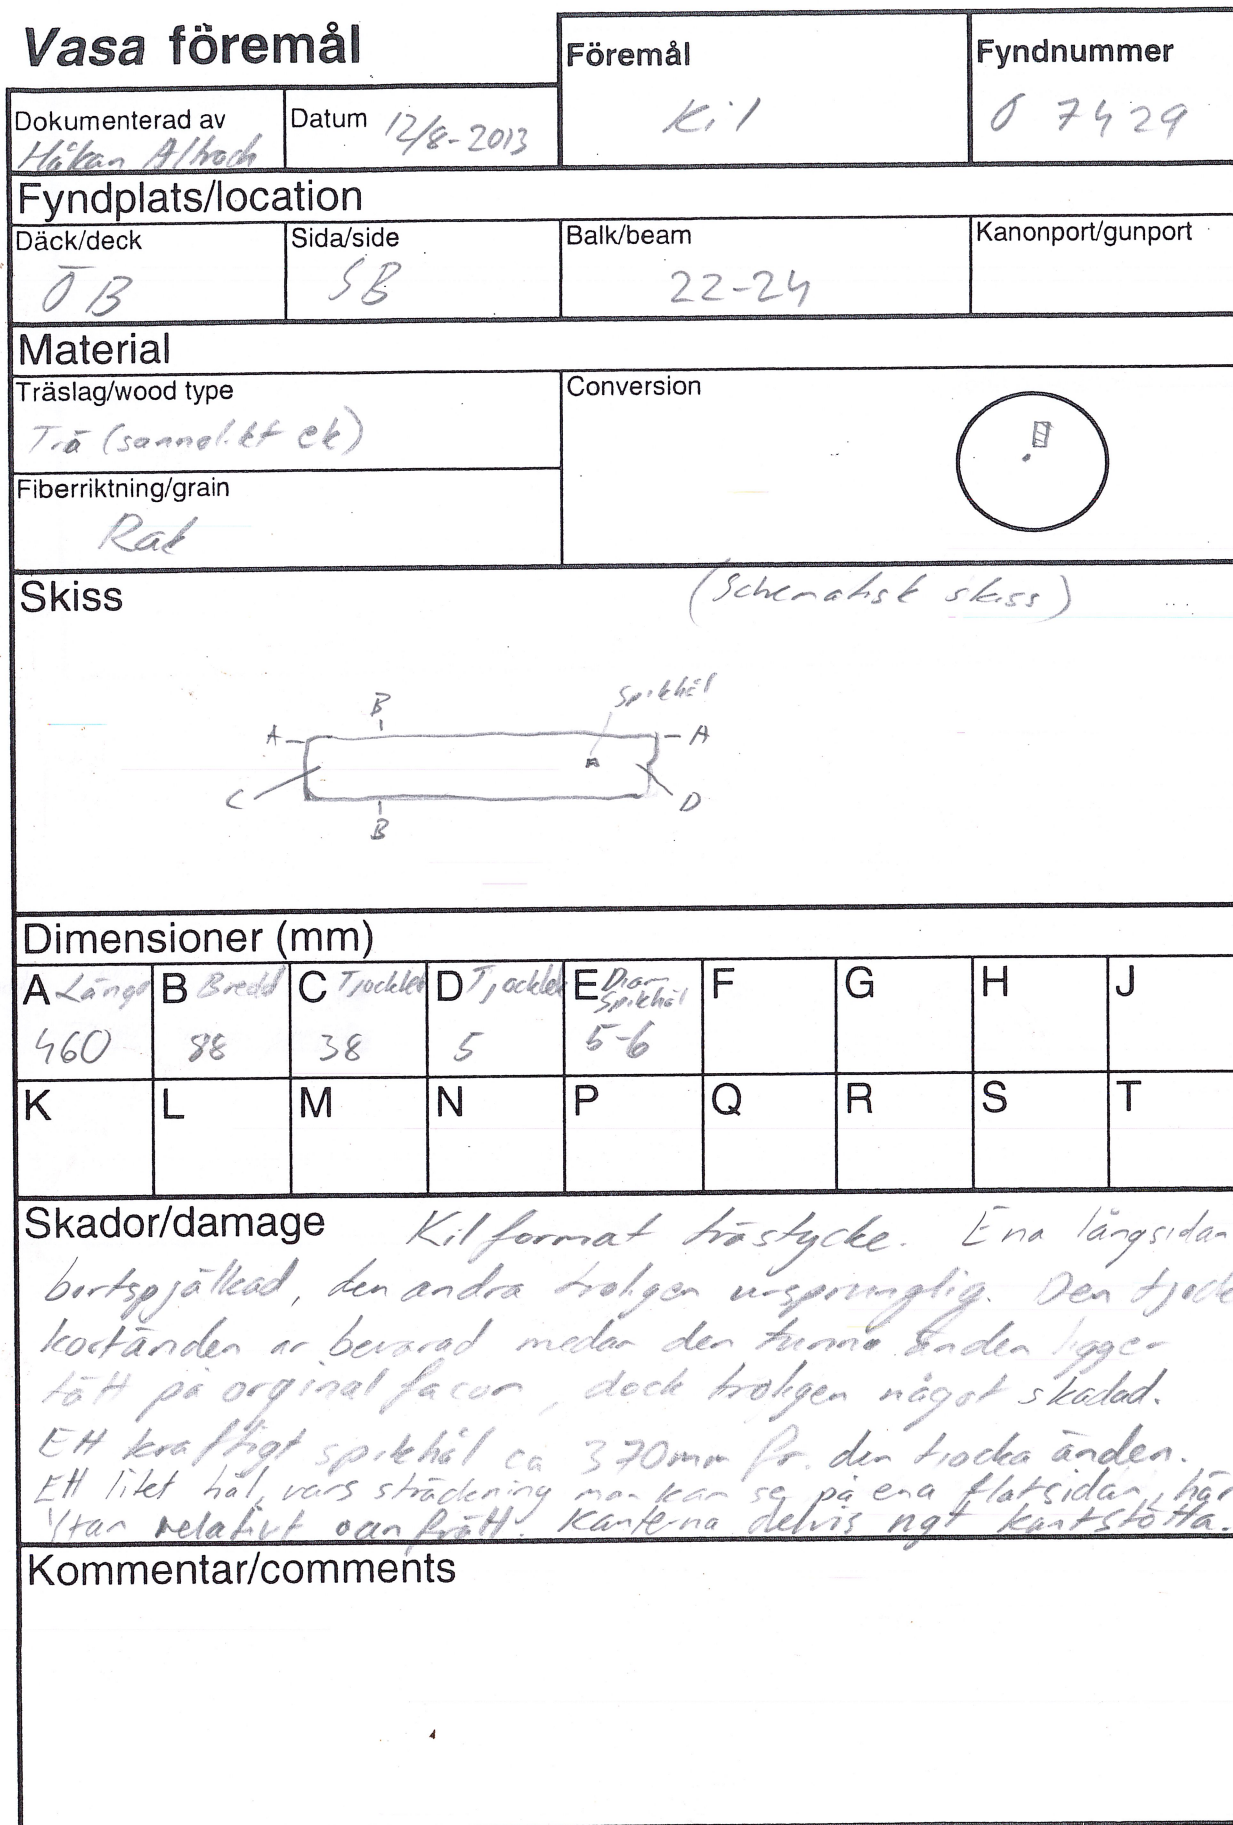 Vasa föremål
Föremål
Kil
Fyndnummer
Ö 7429
Dokumenterad av
Håkan Altrock
Datum 12/8-2013
Fyndplats/location
Däck/deck
ÖB
Sida/side
SB
Balk/beam
22-24
Kanonport/gunport
Material
Träslag/wood type
Trä (sannolikt ek)
Conversion
Fiberriktning/grain
Rak
Skiss
(Schematisk skiss)
Spikhål
B
A
A
C
D
B
Dimensioner (mm)
A Längd
460
B Bredd
88
C Tjocklek
38
D Tjocklek
5
E Diam Spikhål
5-6
F
G
H
J
K
L
M
N
P
Q
R
S
T
Skador/damage Kilformat trästycke. Ena långsidan
bortspjälkad, den andra troligen ursprunglig. Den tjocka
kortänden är bevarad medan den tunna änden ligger
tätt på orginal facon, dock troligen något skadad.
Ett kraftigt spikhål ca 370mm fr. den tjocka änden.
Ett litet hål, vars sträckning man kan se på ena flatsidan, här
Ytan relativt oanfrätt. Kanterna delvis ngt kantstötta.
Kommentar/comments